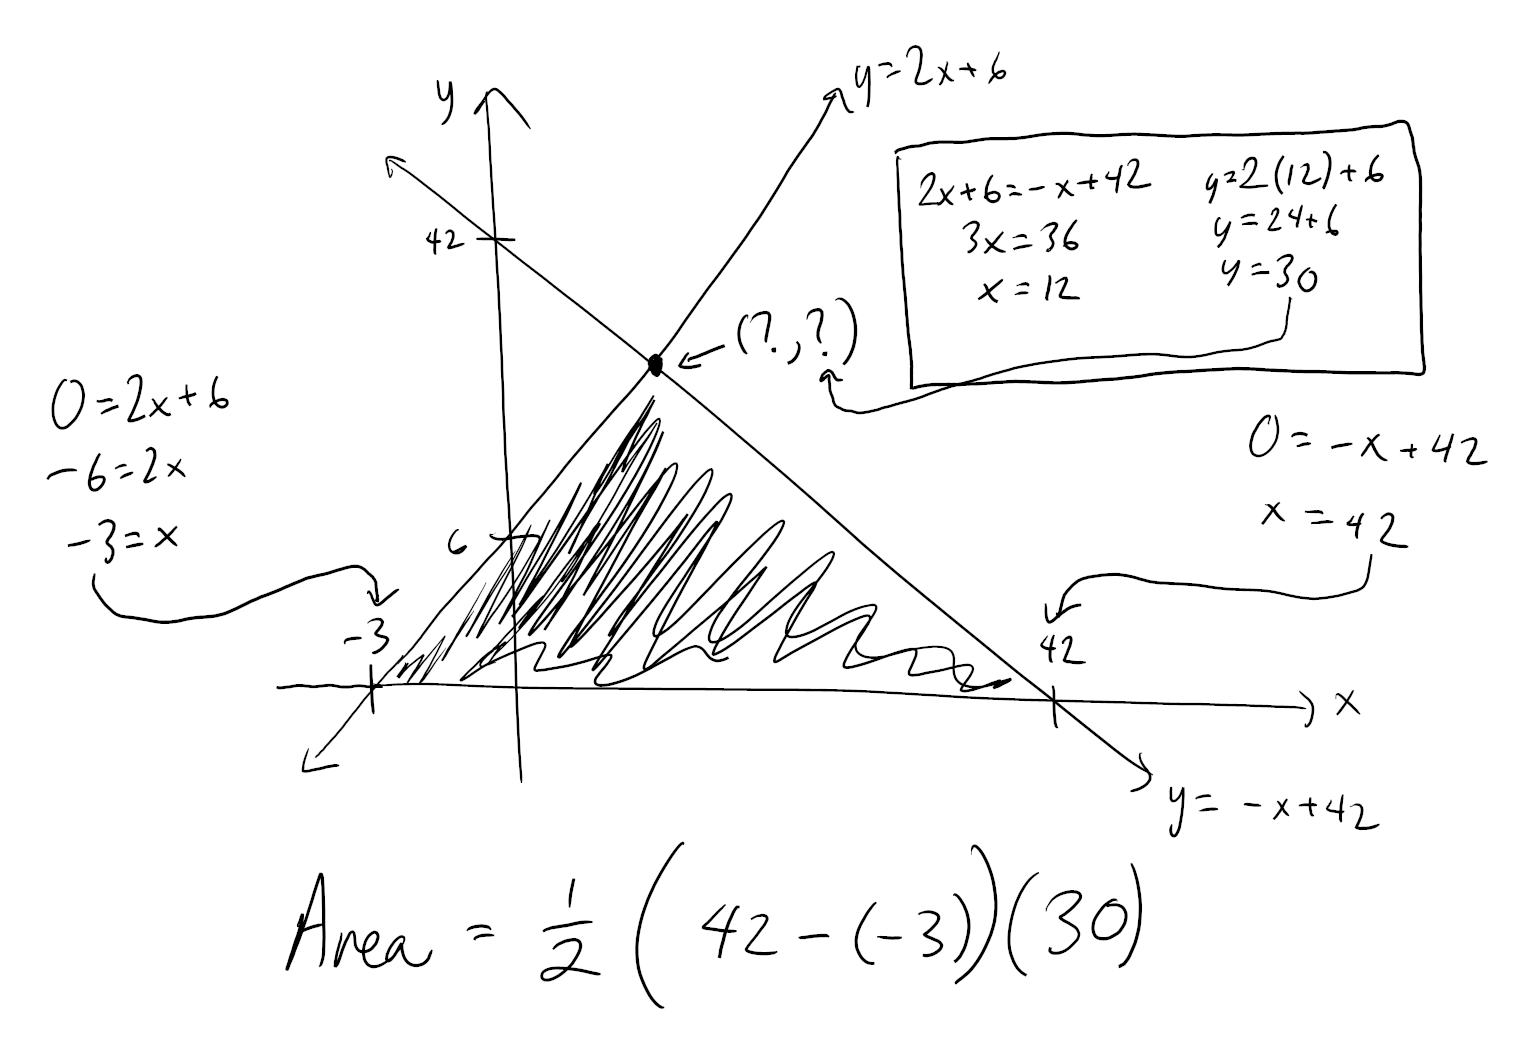 y
y=2x+6
42
2x+6=-x+42
3x=36
x=12
y=2(12)+6
y=24+6
y=30
(?,?)
0=2x+6
-6=2x
-3=x
0=-x+42
x=42
6
-3
42
x
y=-x+42
Area = 1/2 (42-(-3))(30)